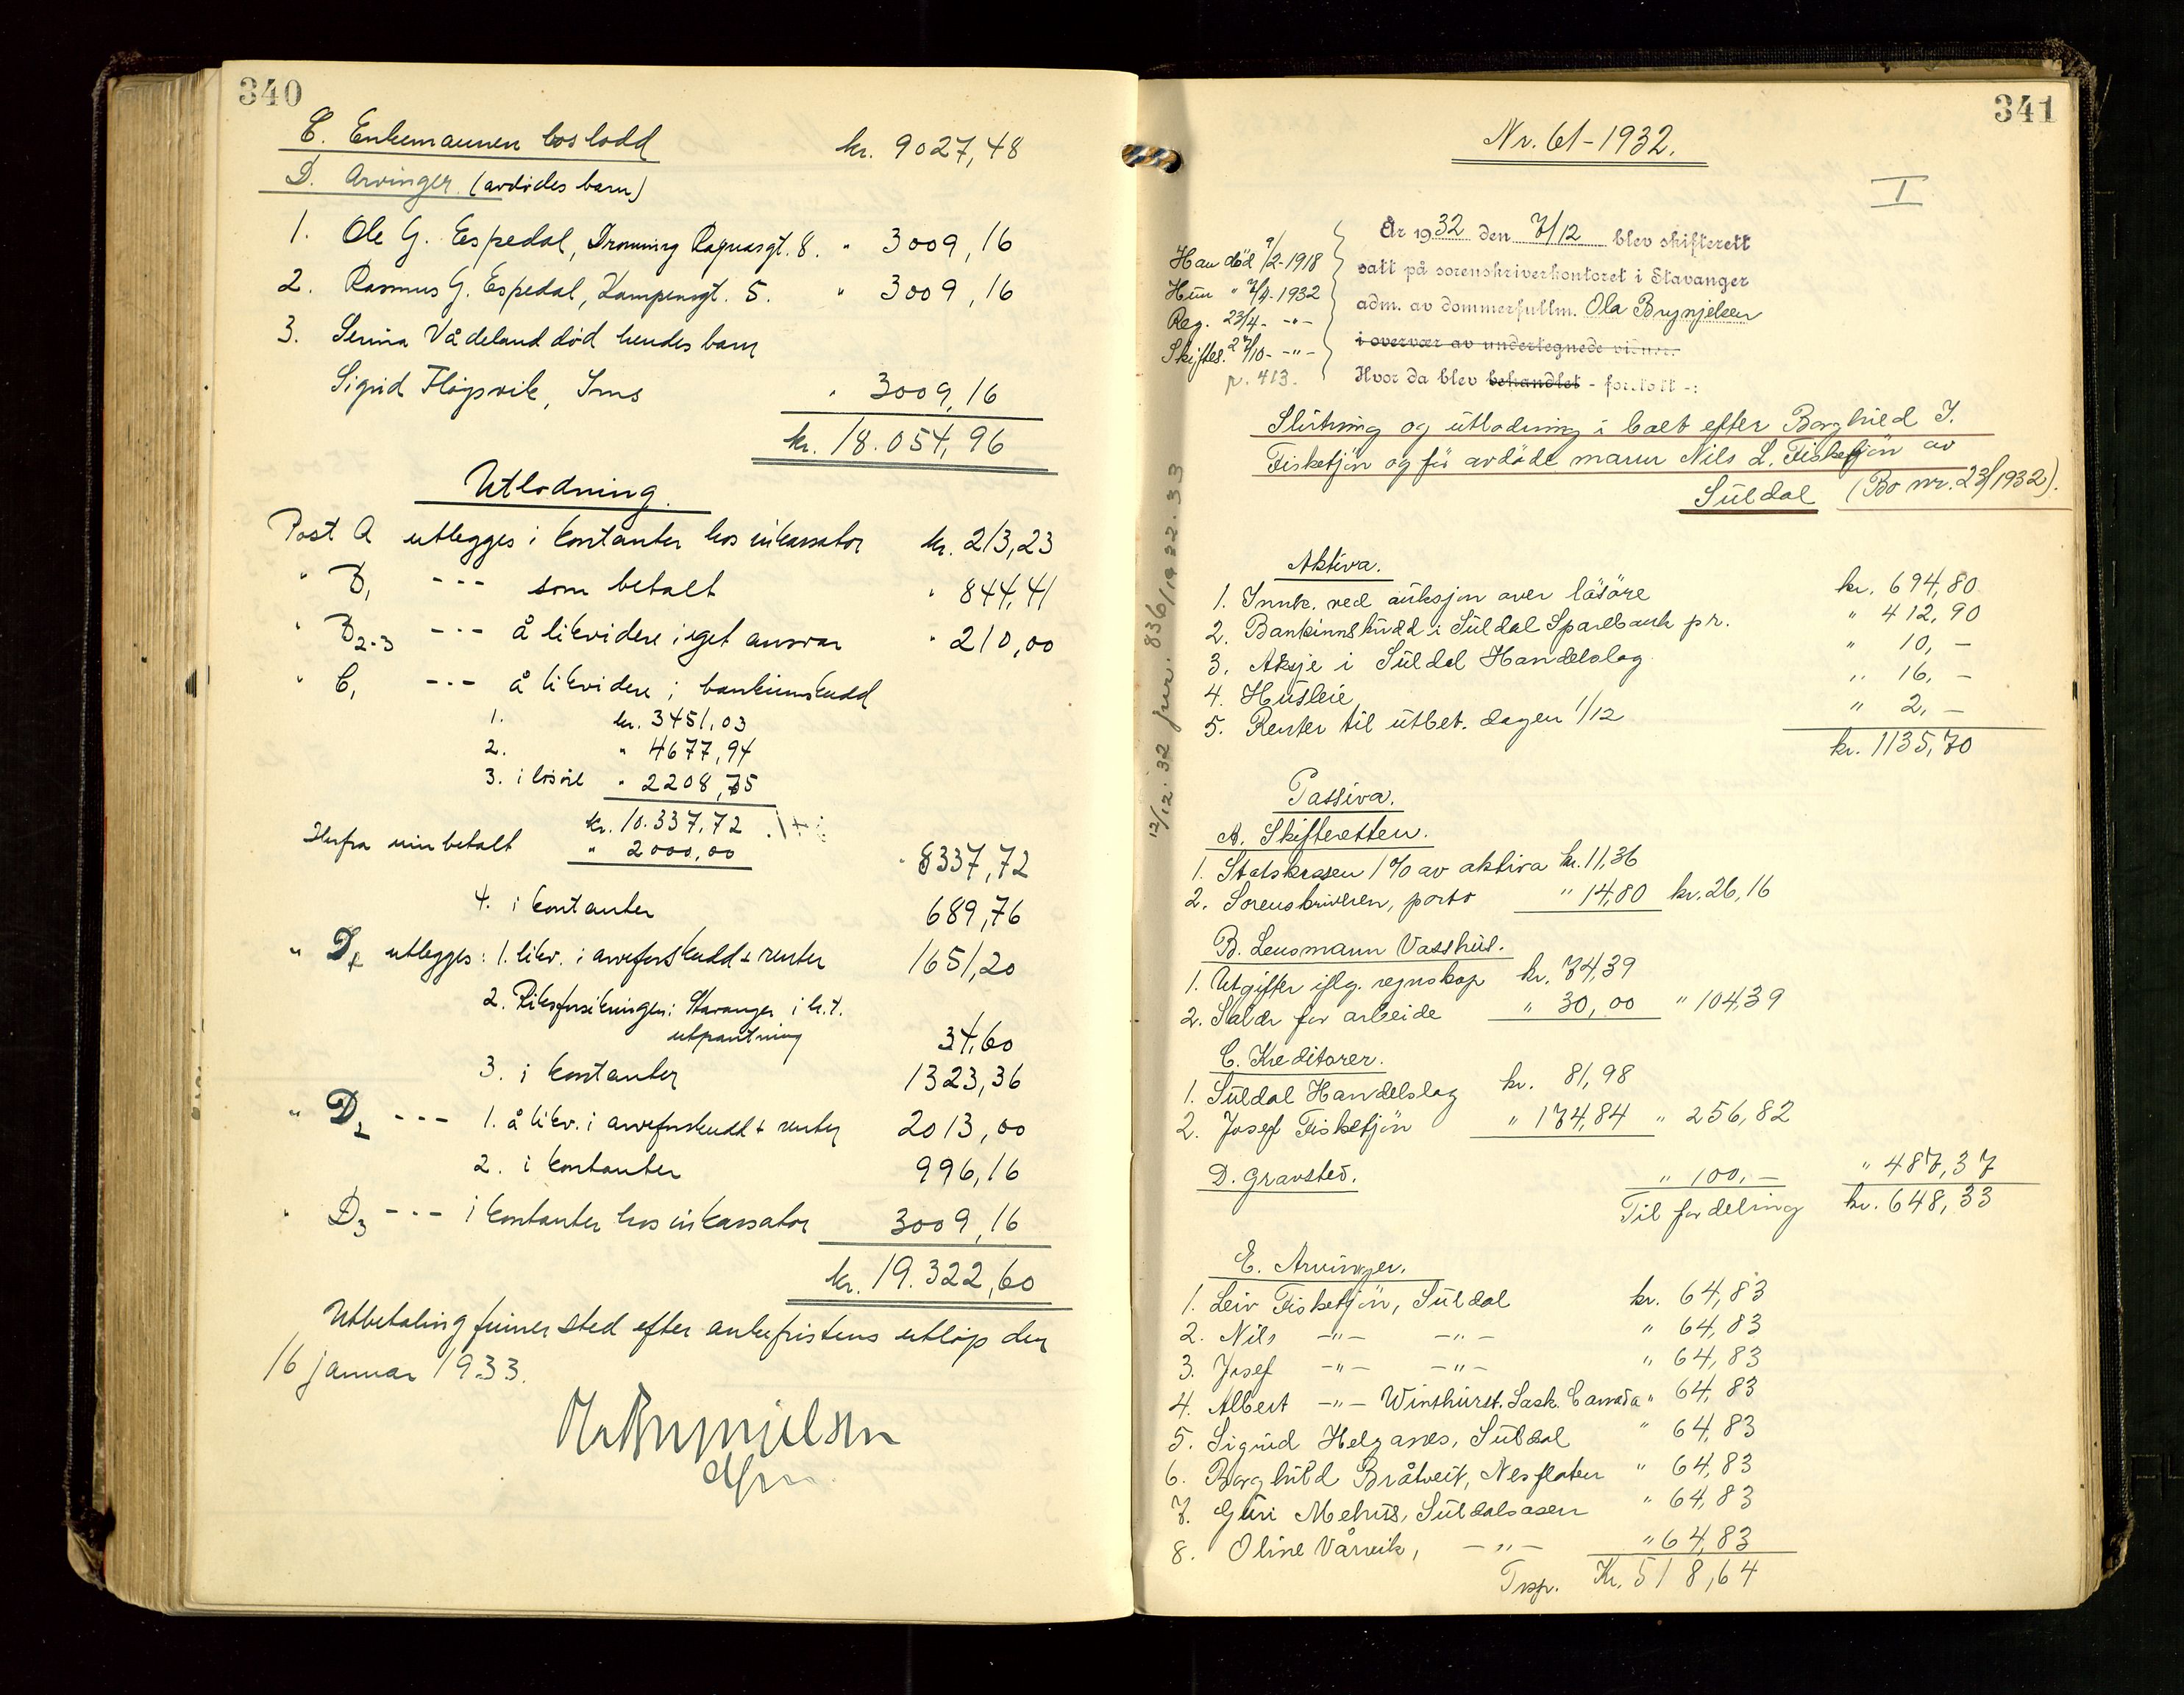 340
C. Enkemannen boslodd kr. 9027,48
D. Arvinger. (avdødes barn)
1. Ole G. Espedal, Dronning Ragnasgt. 8. " 3009,16
2. Rasmus G. Espedal, Kampensgt. 5. " 3009,16
3. Serina Vådeland død hendes barn
Sigrid Fløysvik, Ims " 3009,16
kr. 18.054,96
Utlodning.
Post A utlegges i kontanter hos inkassator kr. 213,23
" B1 -"- som betalt " 844,41
" B2-3 -"- å likvidere i eget ansvar " 210,00
" C1 -"- å likvidere i bankinnskudd
1. kr. 3451,03
2. " 4677,94
3. i løsøre " 2208,75
kr. 10.337,72
Herfra innbetalt " 2000,00 " 8337,72
4. i kontanter 689,76
" D1 utlegges: 1. likv. i arveforskudd + renter 1651,20
2. Riksforsikringen: Stavanger i h.t.
utpantning 34,60
3. i kontanter 1323,36
" D2 -"- 1. å likv. i arveforskudd + renter 2013,00
2. i kontanter 996,16
" D3 -"- i kontanter hos inkassator 3009,16
kr. 19.322,60
Utbetaling finner sted efter ankefristens utløp den
16 januar 1933.
Ola Brynjelsen
dfm
341
Nr. 61-1932.
I
År 1932 den 7/12 blev skifterett
satt på sorenskriverkontoret i Stavanger
adm. av dommerfullm. Ola Brynjelsen
i overvær av undertegnede vidner.
Hvor da blev behandlet - foretatt -:
Han död 9/2-1918
Hun " 7/4-1932
Reg. 23/4- -"-
Skiftes. 27/10- -"-
p. 413.
12/12.32 jnr. 836/1932.33
Slutning og utlodning i boet efter Borghild I.
Fisketjön og för avdöde mann Nils L. Fisketjön av
Suldal (Bo nr. 23/1932).
Aktiva.
1. Innk. ved auksjon over lösöre kr. 694,80
2. Bankinnskudd i Suldal Sparebank pr. " 412,90
3. Aksje i Suldal Handelslag " 10,-
4. Husleie " 16,-
5. Renter til utbet. dagen 1/12 " 2,-
kr. 1135,70
Passiva.
A. Skifteretten.
1. Statskassen 1% av aktiva kr. 11,36
2. Sorenskriveren, porto " 14,80 kr. 26,16
B. Lensmann Vasshus.
1. Utgifter iflg. regnskap kr. 74,39
2. Salær for arbeide " 30,00 " 104,39
C. Kreditorer.
1. Suldal Handelslag kr. 81,98
2. Josef Fisketjön " 174,84 " 256,82
D. Gravsted. " 100,- " 487,37
Til fordeling kr. 648,33
E. Arvinger.
1. Leiv Fisketjön, Suldal kr. 64,83
2. Nils -"- -"- " 64,83
3. Josef -"- -"- " 64,83
4. Albert -"- Winthurst. Sask. Canada " 64,83
5. Sigrid Helganes, Suldal " 64,83
6. Borghild Bråtveit, Nesflaten " 64,83
7. Guri Mehus, Suldalsosen " 64,83
8. Oline Vårvik, -"- " 64,83
Trsp. Kr. 518,64